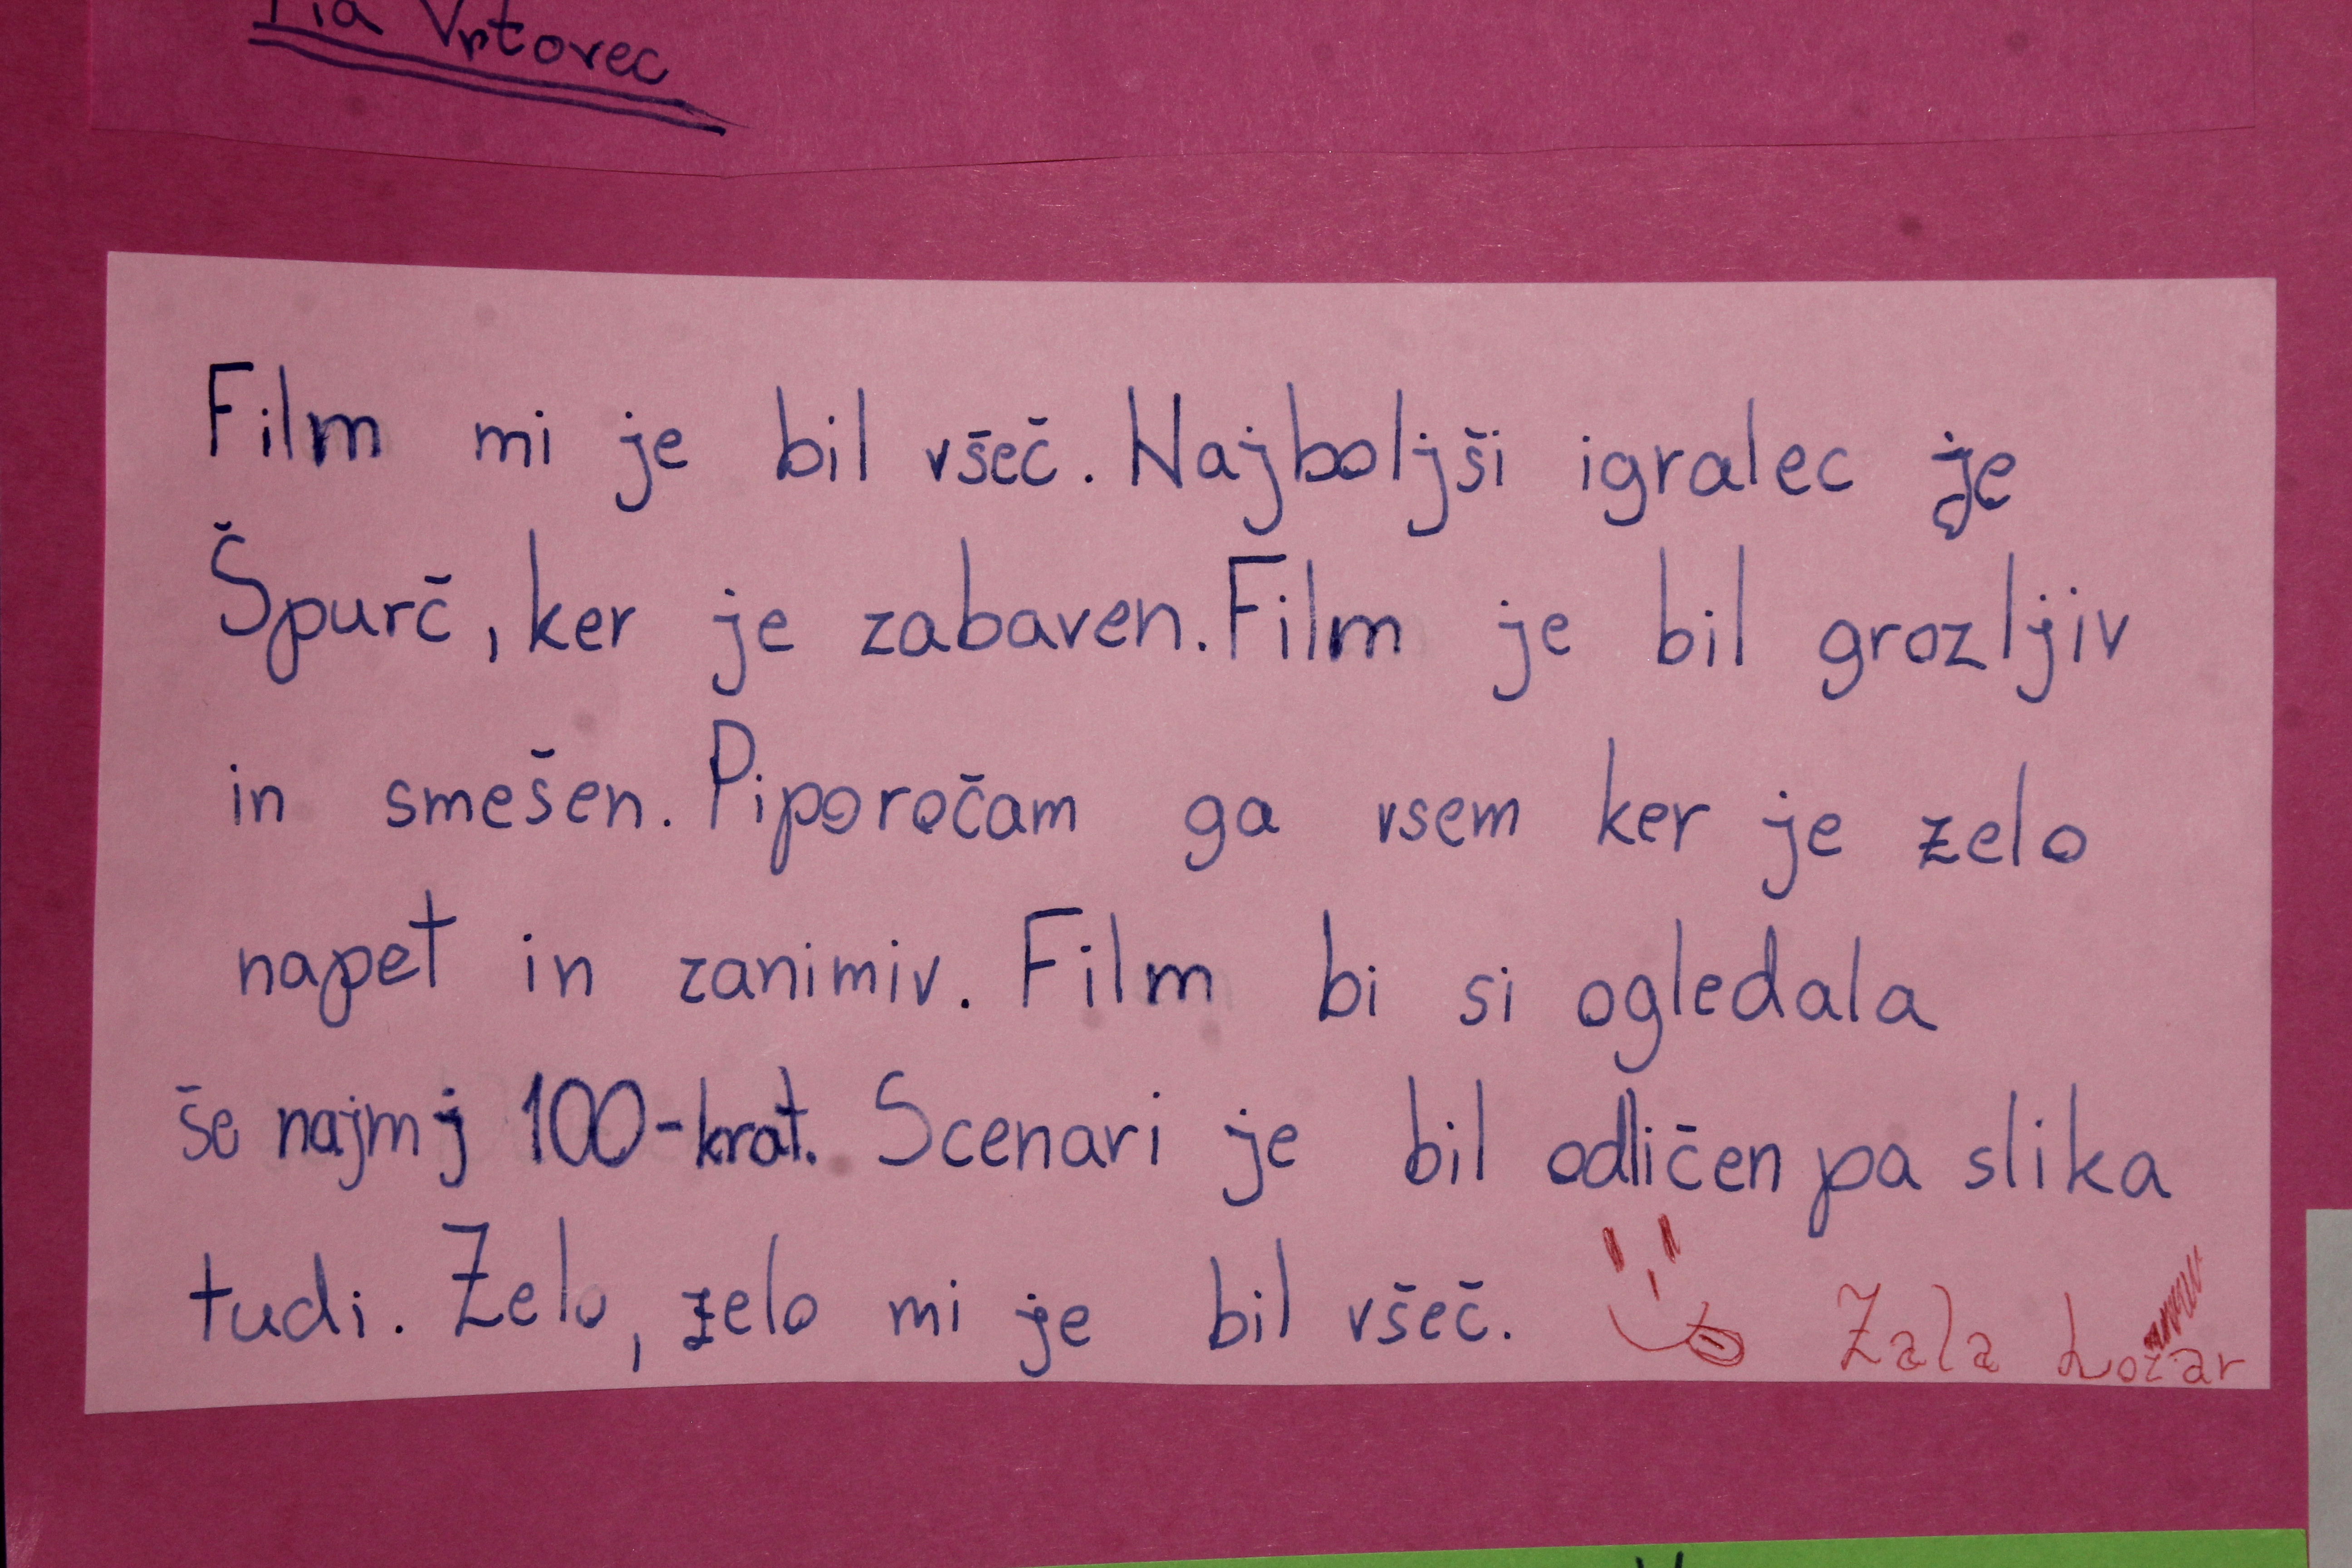 Vrtovec
Film mi je bil všeč. Najboljši igralec je
Špurč, ker je zabaven. Film je bil grozljiv
in smešen. Piporočam ga vsem ker je zelo
napet in zanimiv. Film bi si ogledala
še najmj 100-krat. Scenari je bil odličen pa slika
tudi. Zelo, zelo mi je bil všeč.
Zala Ložar